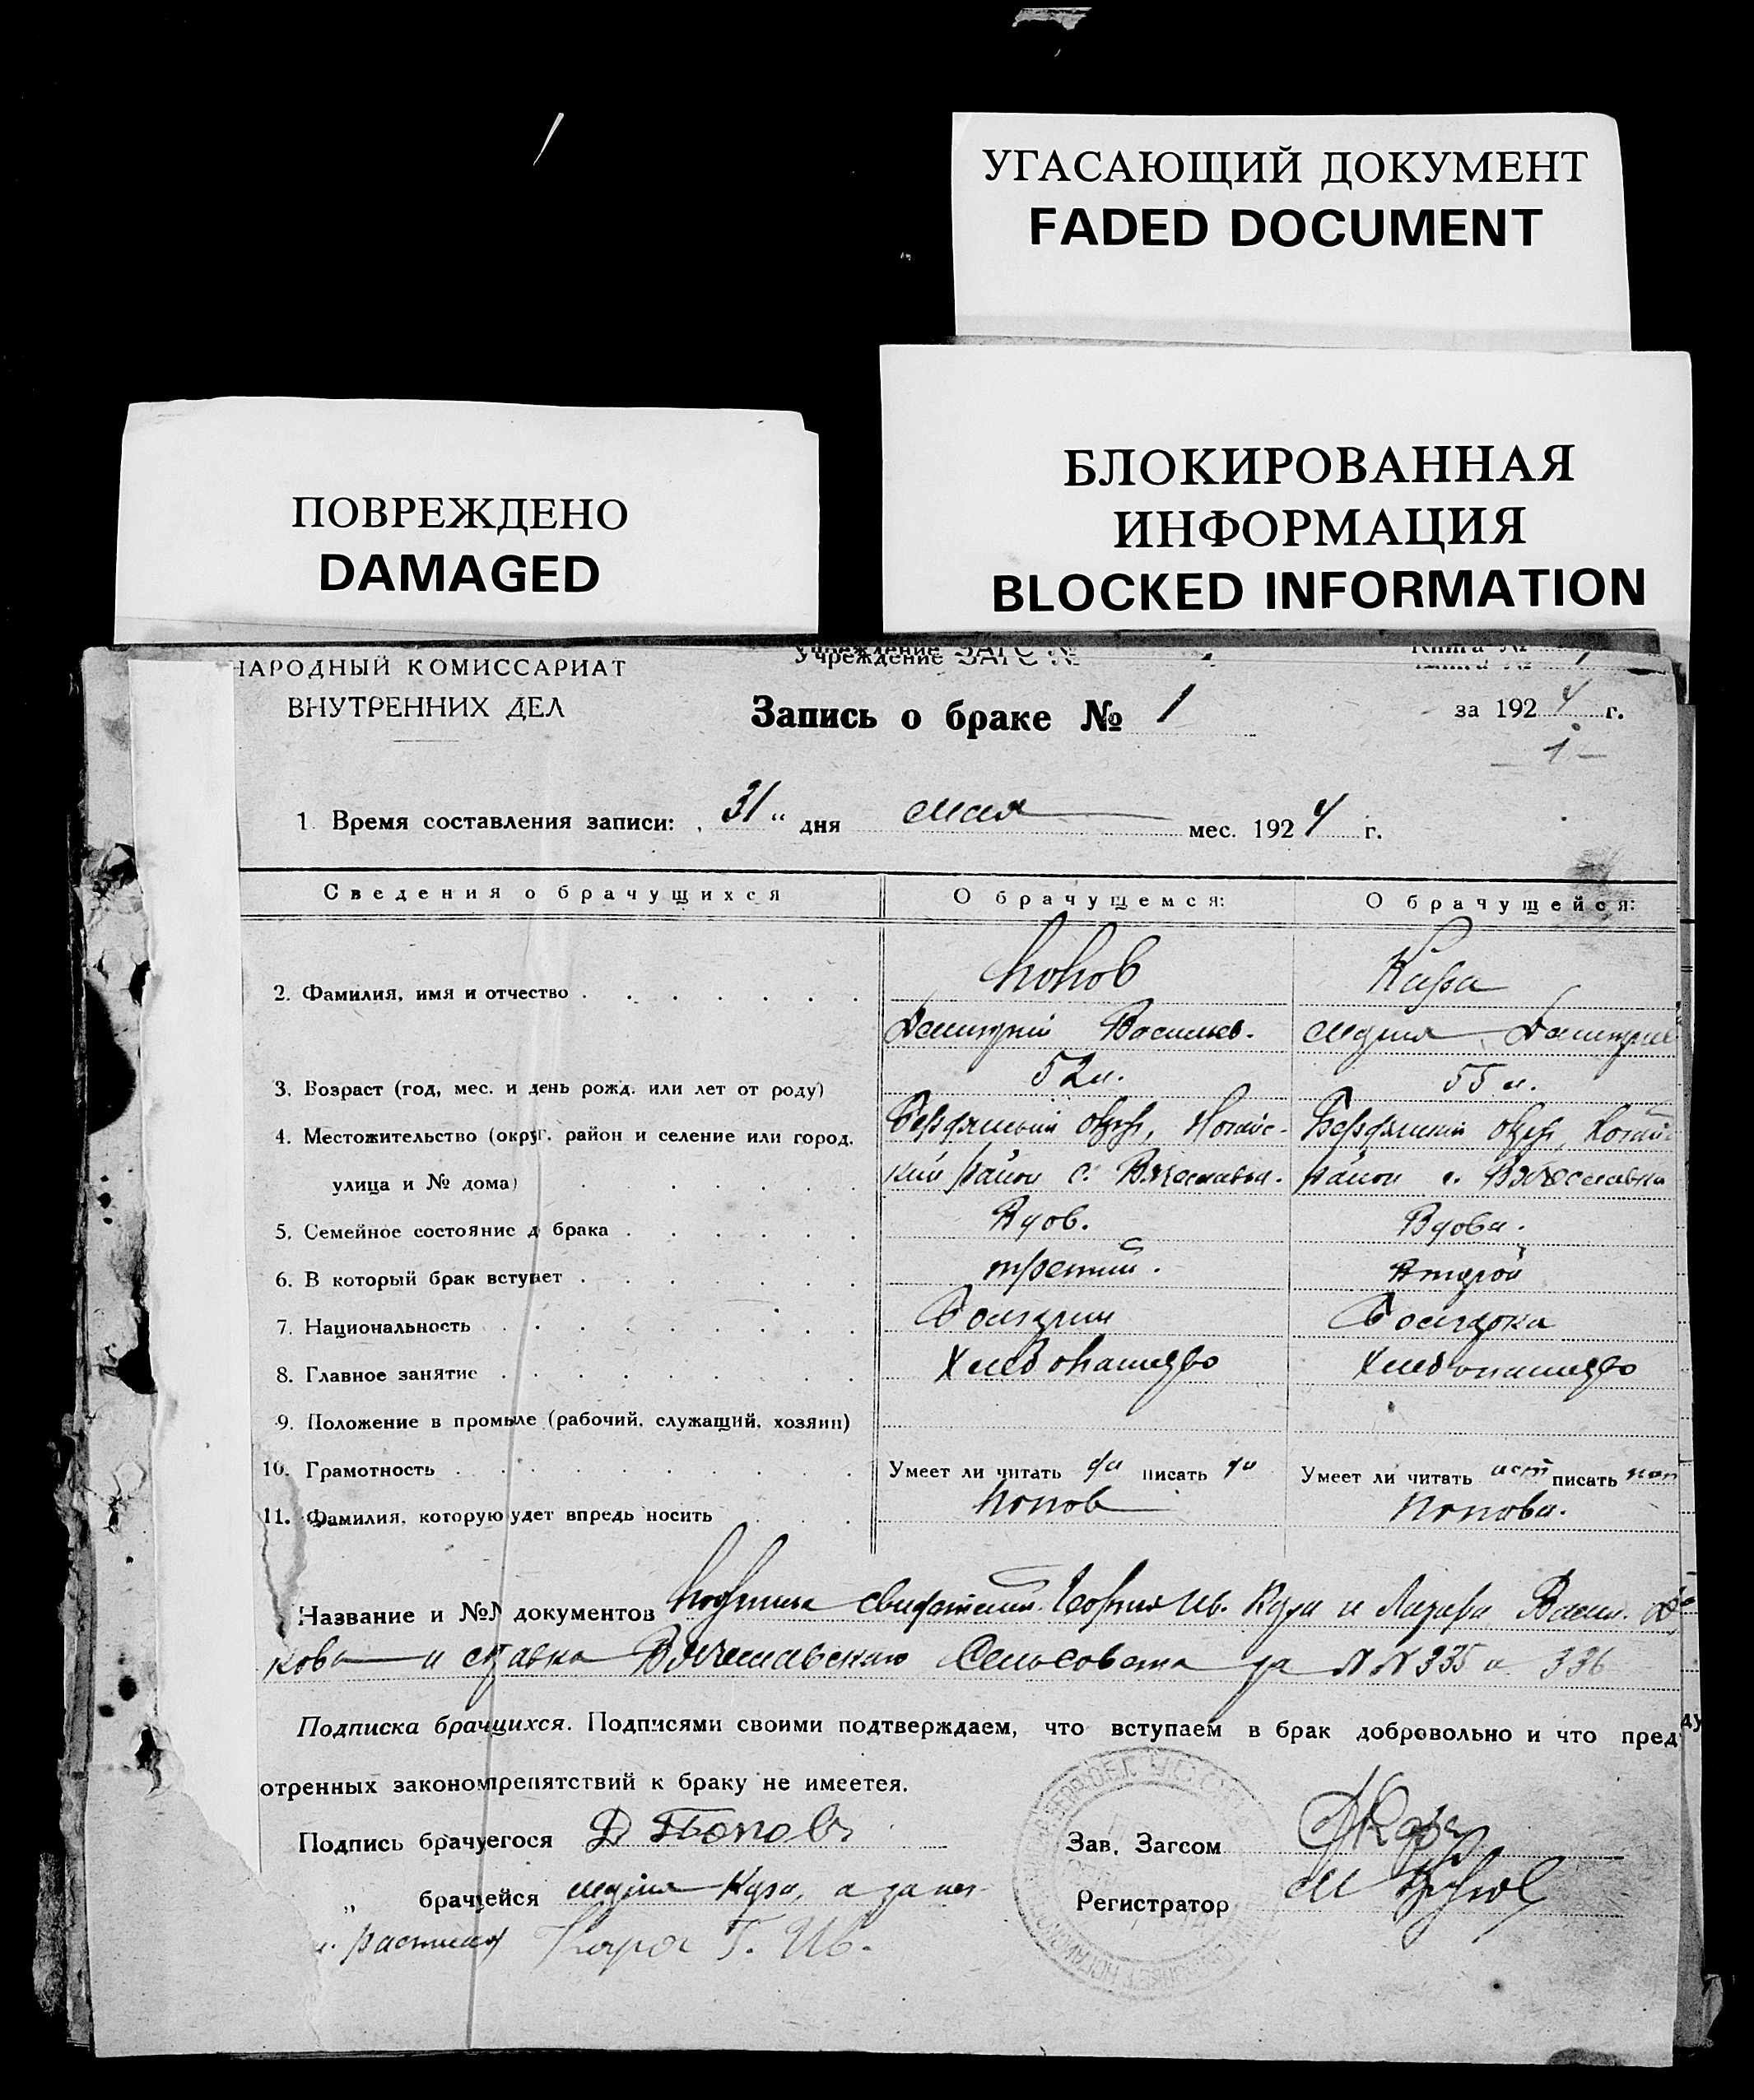 УГАСАЮЩИЙ ДОКУМЕНТ
FADED DOCUMENT
БЛОКИРОВАННАЯ
ИНФОРМАЦИЯ
BLOCKED INFORMATION
ПОВРЕЖДЕНО
DAMAGED
НАРОДНЫЙ КОМИССАРИАТ
ВНУТРЕННИХ ДЕЛ
Учреждение ЗАГС №
Книга №
Запись о браке № 1
за 1924 г.
1
1. Время составления записи: 31 " дня мая мес. 1924 г.
Сведения о брачущихся
О брачущемся:
О брачущейся:
2. Фамилия, имя и отчество
Попов
Кара
Дмитрий Васильев.
Мария Дмитриев
3. Возраст (год, мес. и день рожд. или лет от роду)
52 л.
55 л.
4. Местожительство (округ, район и селение или город,
Бердянский округ, Ногайс-
Бердянский округ, Ногайс
улица и № дома)
кий район с. Вячеславка.
район с. Вячеславка
5. Семейное состояние д брака
Вдов.
Вдова.
6. В который брак вступает
третий.
Второй
7. Национальность
Болгарин
Болгарка
8. Главное занятие
Хлебопашество
Хлебопашество
9. Положение в промысле (рабочий, служащий, хозяин)
10. Грамотность
Умеет ли читать да писать да
Умеет ли читать нет писать нет
11. Фамилия, которую удет впредь носить
Попов
Попова.
Название и №№ документов свидетелей Георгия Ив. Кара и Лазаря Васил.
кова и справка Вячеславского Сельсовета за №№ 335 и 336
Подписка брачщихся. Подписями своими подтверждаем, что вступаем в брак добровольно и что пред
отренных законом препятствий к браку не имеется.
Подпись брачуегося Д Поповъ
Зав. Загсом
" брачуейся Мария Кара, а за нег
Регистратор М
распис Кара Г. Ив.